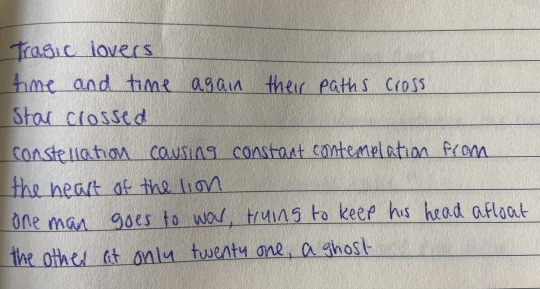 Tragic lovers
time and time again their paths cross
Star crossed
constellation causing constant contemplation from
the heart of the lion
one man goes to war, trying to keep his head afloat
the other at only twenty one, a ghost